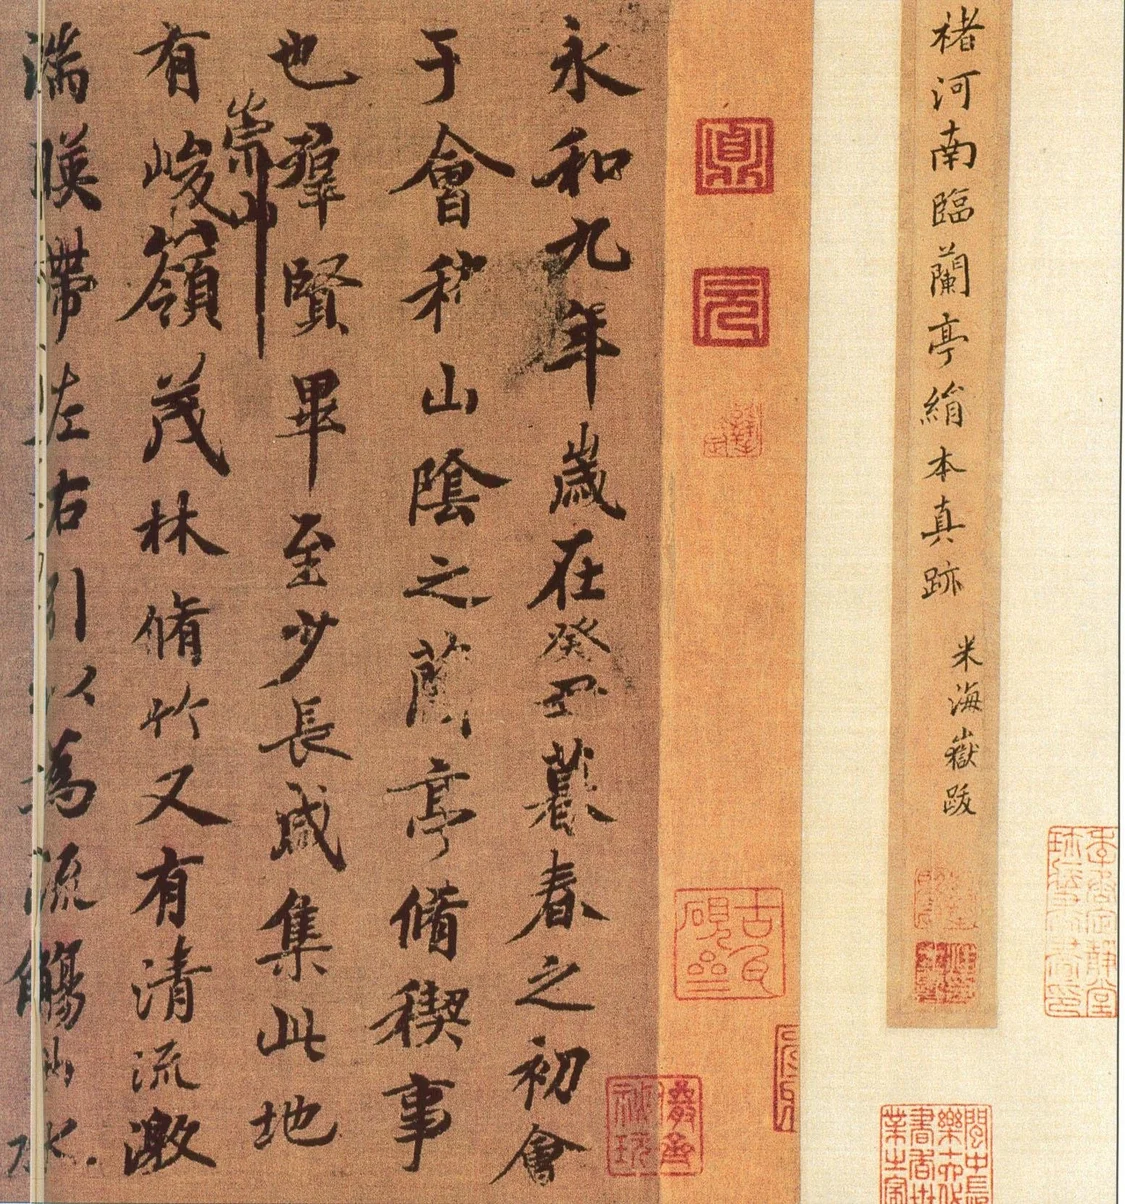 褚河南臨蘭亭絹本真跡
米海嶽跋
永和九年歲在癸丑暮春之初會
于會稽山陰之蘭亭脩稧事
也羣賢畢至少長咸集此地
崇山
有峻嶺茂林脩竹又有清流激
湍暎帶左右引以為流觴曲水